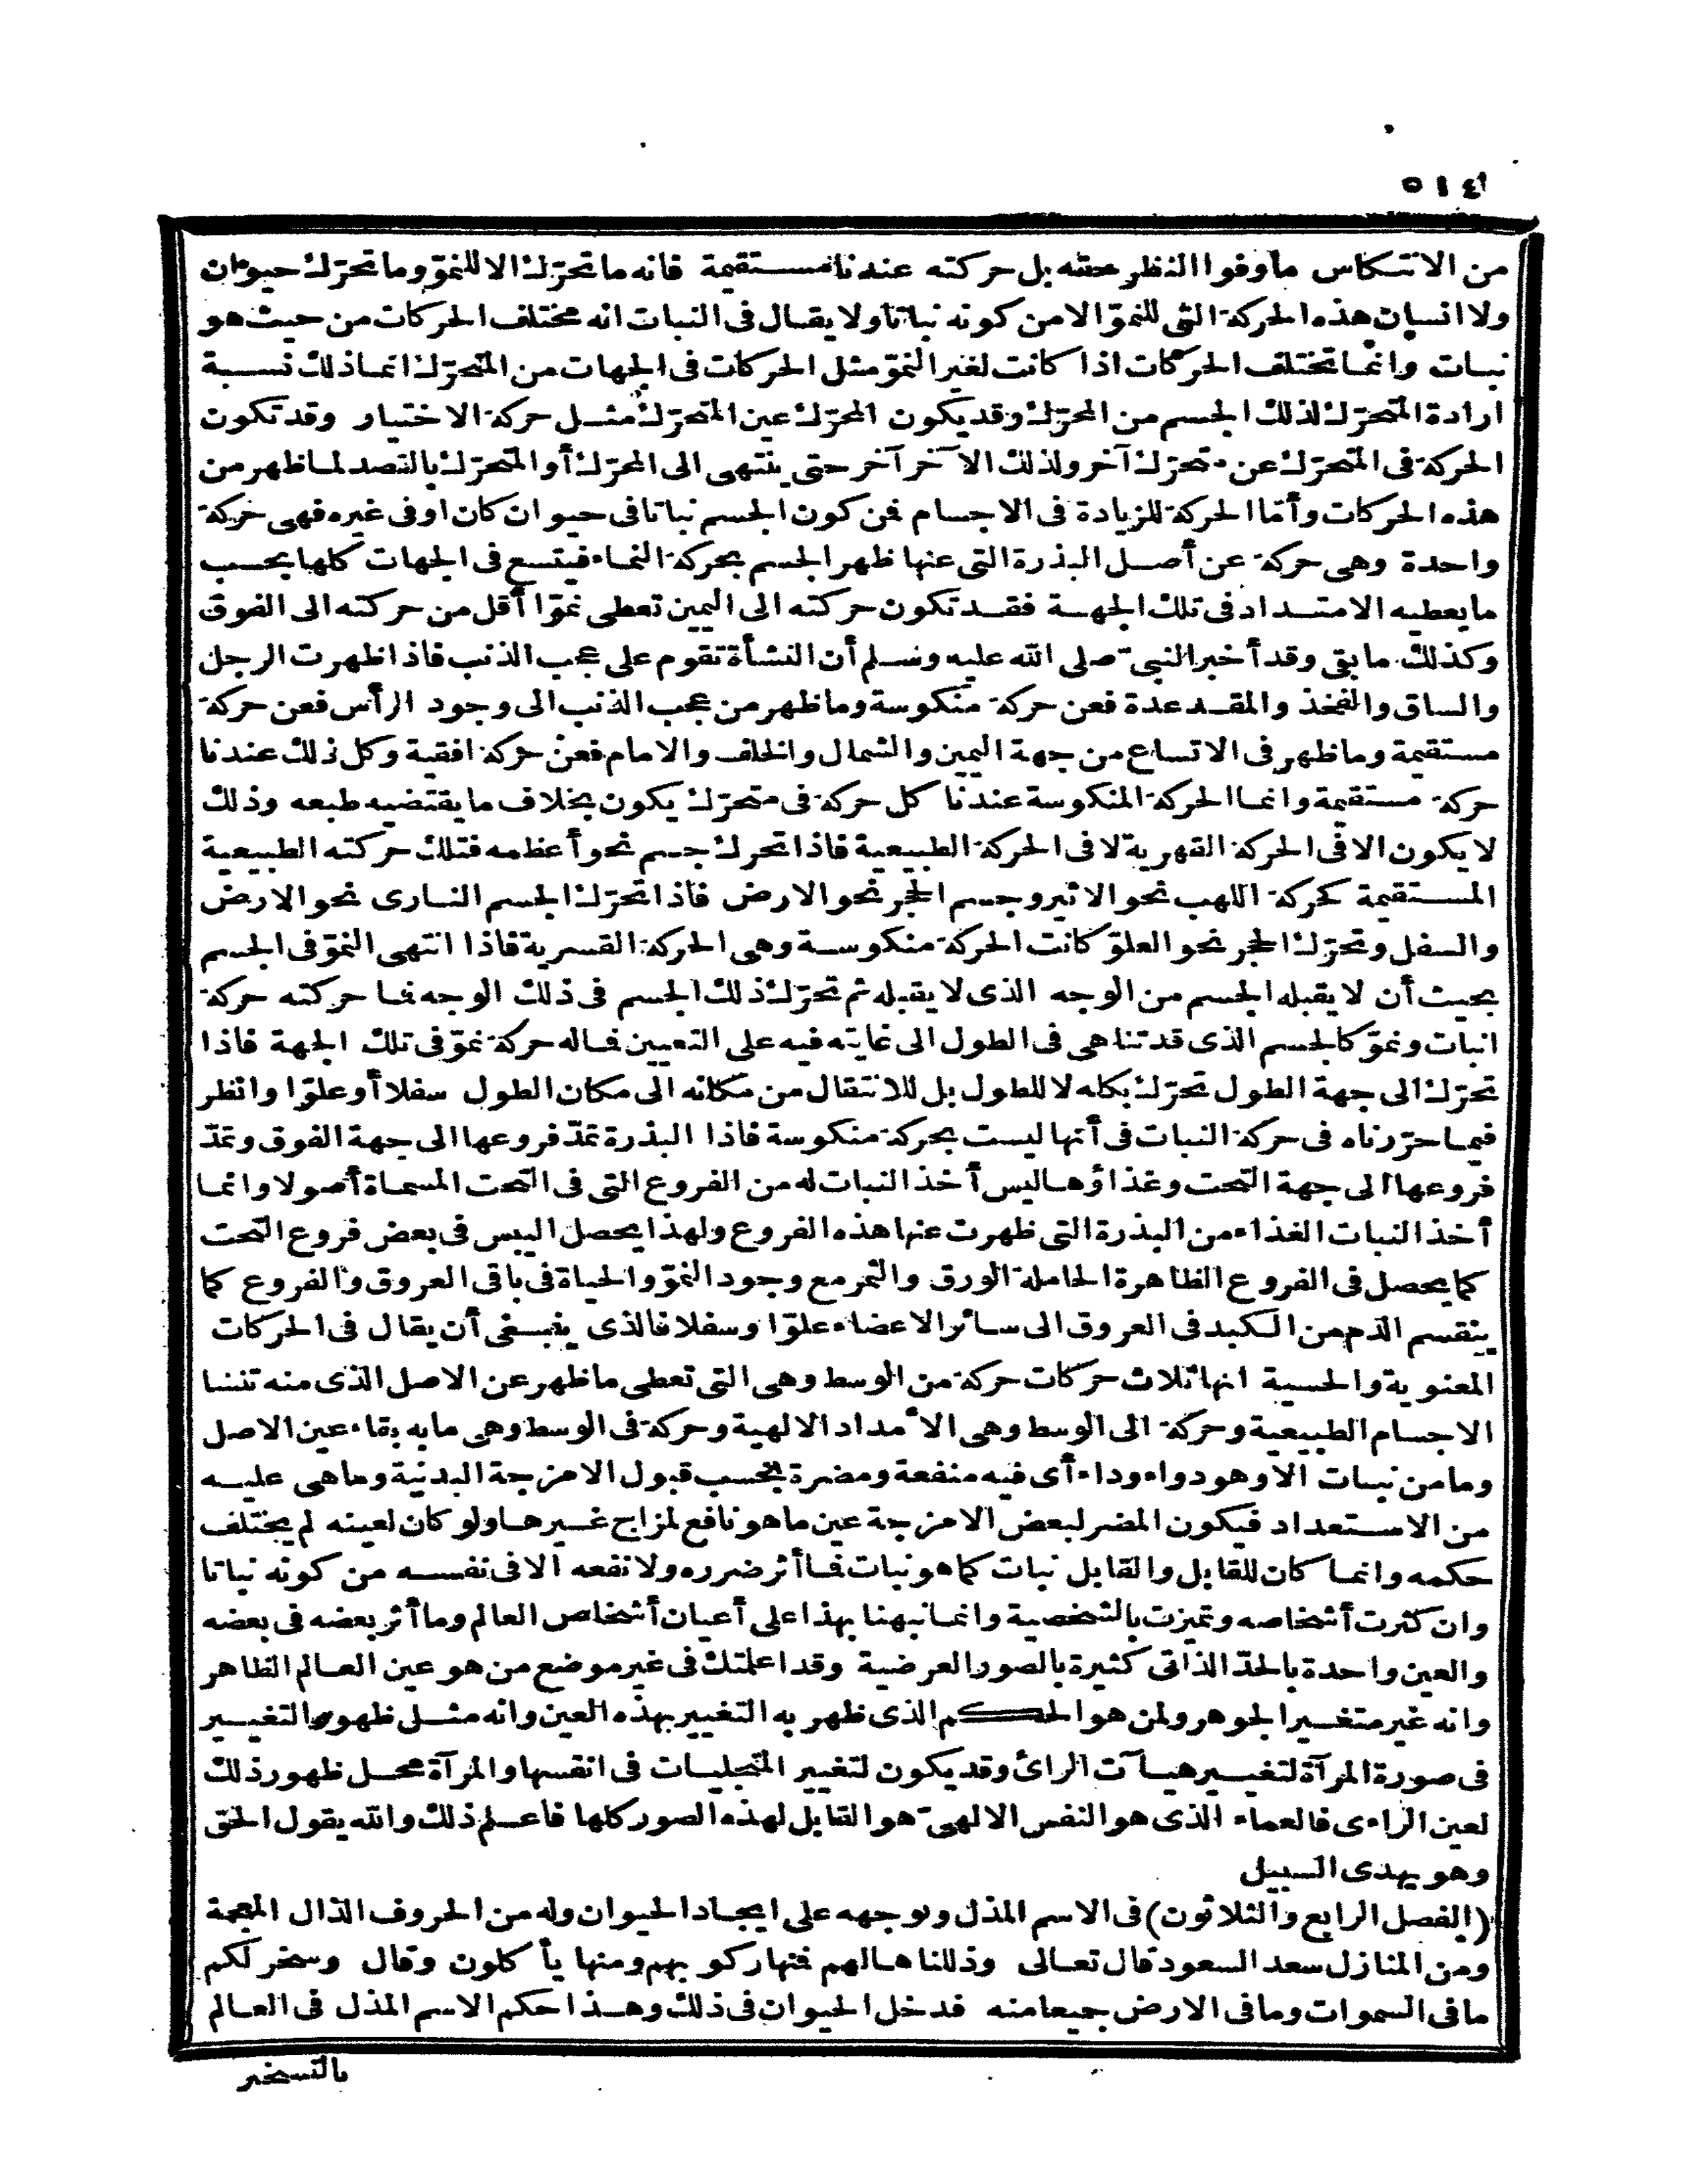 ٥١٤
من الانتكاس ماوفوا النظر حقه بل حركته عندنا مستقيمة فانه ما تحرّك الا للنموّ وما تحرّك حيوان
ولا انسان هذه الحركة التى للنموّ الا من كونه نباتا ولا يقال فى النبات انه مختلف الحركات من حيث هو
نبات وانما تختلف الحركات اذا كانت لغير النموّ مثل الحركات فى الجهات من المتحرّك انما ذلك نسبة
ارادة المتحرّك لذلك الجسم من المحرّك وقد يكون المحرّك عين المتحرّك مثل حركة الاختيار وقد تكون
الحركة فى المتحرّك عن متحرّك آخر ولذلك الآخر آخر حتى ينتهى الى المحرّك أو المتحرّك بالقصد لما ظهر من
هذه الحركات وأمّا الحركة للزيادة فى الاجسام فمن كون الجسم نباتا فى حيوان كان او فى غيره فهى حركة
واحدة وهى حركة عن أصل البذرة التى عنها ظهر الجسم بحركة النماء فيتسع فى الجهات كلها بحسب
ما يعطيه الامتداد فى تلك الجهة فقد تكون حركته الى اليمين تعطى نموّا أقل من حركته الى الفوق
وكذلك ما بقى وقد أخبر النبىّ صلى الله عليه وسلم أن النشأة تقوم على عجب الذنب فاذا ظهرت الرجل
والساق والفخذ والمقعدة فعن حركة منكوسة وما ظهر من عجب الذنب الى وجود الرأس فعن حركة
مستقيمة وما ظهر فى الاتساع من جهة اليمين والشمال والخلف والامام فعن حركة افقية وكل ذلك عندنا
حركة مستقيمة وانما الحركة المنكوسة عندنا كل حركة فى متحرّك يكون بخلاف ما يقتضيه طبعه وذلك
لا يكون الا فى الحركة القهرية لا فى الحركة الطبيعية فاذا تحرك جسم نحو أعظمه فتلك حركته الطبيعية
المستقيمة كحركة اللهب نحو الاثير وجسم الحجر نحو الارض فاذا تحرّك الجسم النارى نحو الارض
والسفل وتحرّك الحجر نحو العلوّ كانت الحركة منكوسة وهى الحركة القسرية فاذا انتهى النموّ فى الجسم
بحيث أن لا يقبله الجسم من الوجه الذى لا يقبله ثم تحرّك ذلك الجسم فى ذلك الوجه فما حركته حركة
انبات ونموّ كالجسم الذى قد تناهى فى الطول الى غايته فيه على التعيين فماله حركة نموّ فى تلك الجهة فاذا
تحرّك الى جهة الطول تحرّك بكله لا للطول بل للانتقال من مكانه الى مكان الطول سفلا أو علوّا وانظر
فيما حرّرناه فى حركة النبات فى أنها ليست بحركة منكوسة فاذا البذرة تمدّ فروعها الى جهة الفوق وتمدّ
فروعها الى جهة التحت وغذاؤها ليس أخذ النبات له من الفروع التى فى التحت المسماة أصولا وانما
أخذ النبات الغذاء من البذرة التى ظهرت عنها هذه الفروع ولهذا يحصل اليبس فى بعض فروع التحت
كما يحصل فى الفروع الظاهرة الحاملة الورق والثمر مع وجود النموّ والحياة فى باقى العروق والفروع كما
ينقسم الدّم من الكبد فى العروق الى سائر الاعضاء علوّا وسفلا فالذى ينبغى أن يقال فى الحركات
المعنوية والحسية انها ثلاث حركات حركة من الوسط وهى التى تعطى ما ظهر عن الاصل الذى منه تنشا
الاجسام الطبيعية وحركة الى الوسط وهى الامداد الالهية وحركة فى الوسط وهى ما به بقاء عين الاصل
وما من نبات الا وهو دواء وداء أى فيه منفعة ومضرة بحسب قبول الامزجة البدنية وما هى عليه
من الاستعداد فيكون المضر لبعض الامزجة عين ما هو نافع لمزاج غيرها ولو كان لعينه لم يختلف
حكمه وانما كان للقابل والقابل نبات كما هو نبات فما أثر ضرره ولا نفعه الا فى نفسه من كونه نباتا
وان كثرت أشخاصه وتميزت بالشخصية وانما نبهنا بهذا على أعيان أشخاص العالم وما أثر بعضه فى بعضه
والعين واحدة بالحدّ الذاتى كثيرة بالصور العرضية وقد اعلمتك فى غير موضع من هو عين العالم الظاهر
وانه غير متغير الجوهر ولمن هو الحكم الذى ظهر به التغيير بهذه العين وانه مثل ظهور التغيير
فى صورة المرآة لتغيير هيآت الرائ وقد يكون لتغيير المتجليات فى انفسها والمرآة محل ظهور ذلك
لعين الراءى فالعماء الذى هو النفس الالهىّ هو القابل لهذه الصور كلها فاعلم ذلك والله يقول الحق
وهو يهدى السبيل
(الفصل الرابع والثلاثون) فى الاسم المذل وتوجهه على ايجاد الحيوان وله من الحروف الذال المعجمة
ومن المنازل سعد السعود قال تعالى وذللناها لهم فمنها ركوبهم ومنها يأكلون وقال وسخر لكم
ما فى السموات وما فى الارض جميعا منه فدخل الحيوان فى ذلك وهذا حكم الاسم المذل فى العالم
بالتسخير